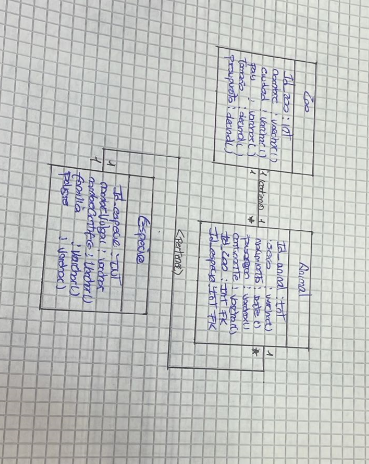 Zoo
Id_zoo : INT
nombre : varchar()
ciudad : varchar()
pais : varchar()
tamaño : decimal()
presupuesto : decimal()
1 contienen 1
1 *
Animal
Id_animal : INT
sexo : varchar()
: date()
: varchar()
continente : varchar()
Id_zoo : INT FK
Id_especie : INT FK
1
*
(Pertenece)
Especie
1
1
Id_especie : INT
nombreVulgar : varchar
nombreCientifico : varchar()
familia : varchar()
peligro : varchar()